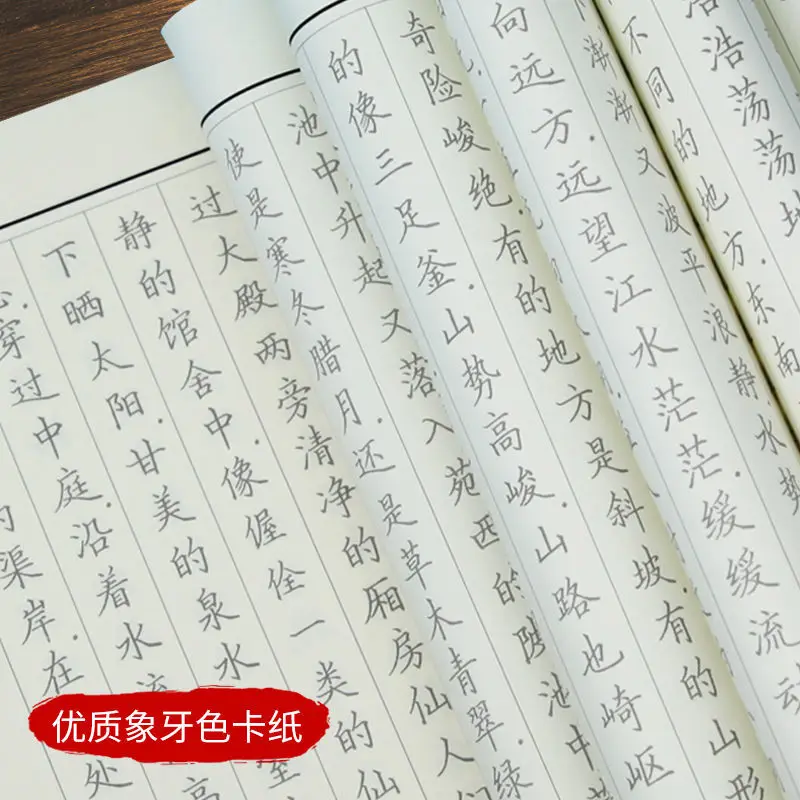 浩浩荡荡地
不同的地方.东南
渐渐又波平浪静.水势
向远方.远望江水茫茫.缓缓流动
奇险峻绝.有的地方是斜坡.有的山形
的像三足釜.山势高峻.山路也崎岖
池中.升起又落入苑西的陂池中
使是寒冬腊月.还是草木青翠.绿
过大殿两旁清净的厢房仙人们
静的馆舍中.像偓佺一类的仙
下晒太阳.甘美的泉水
穿过中庭.沿着水流
渠岸.在
处
高
优质象牙色卡纸